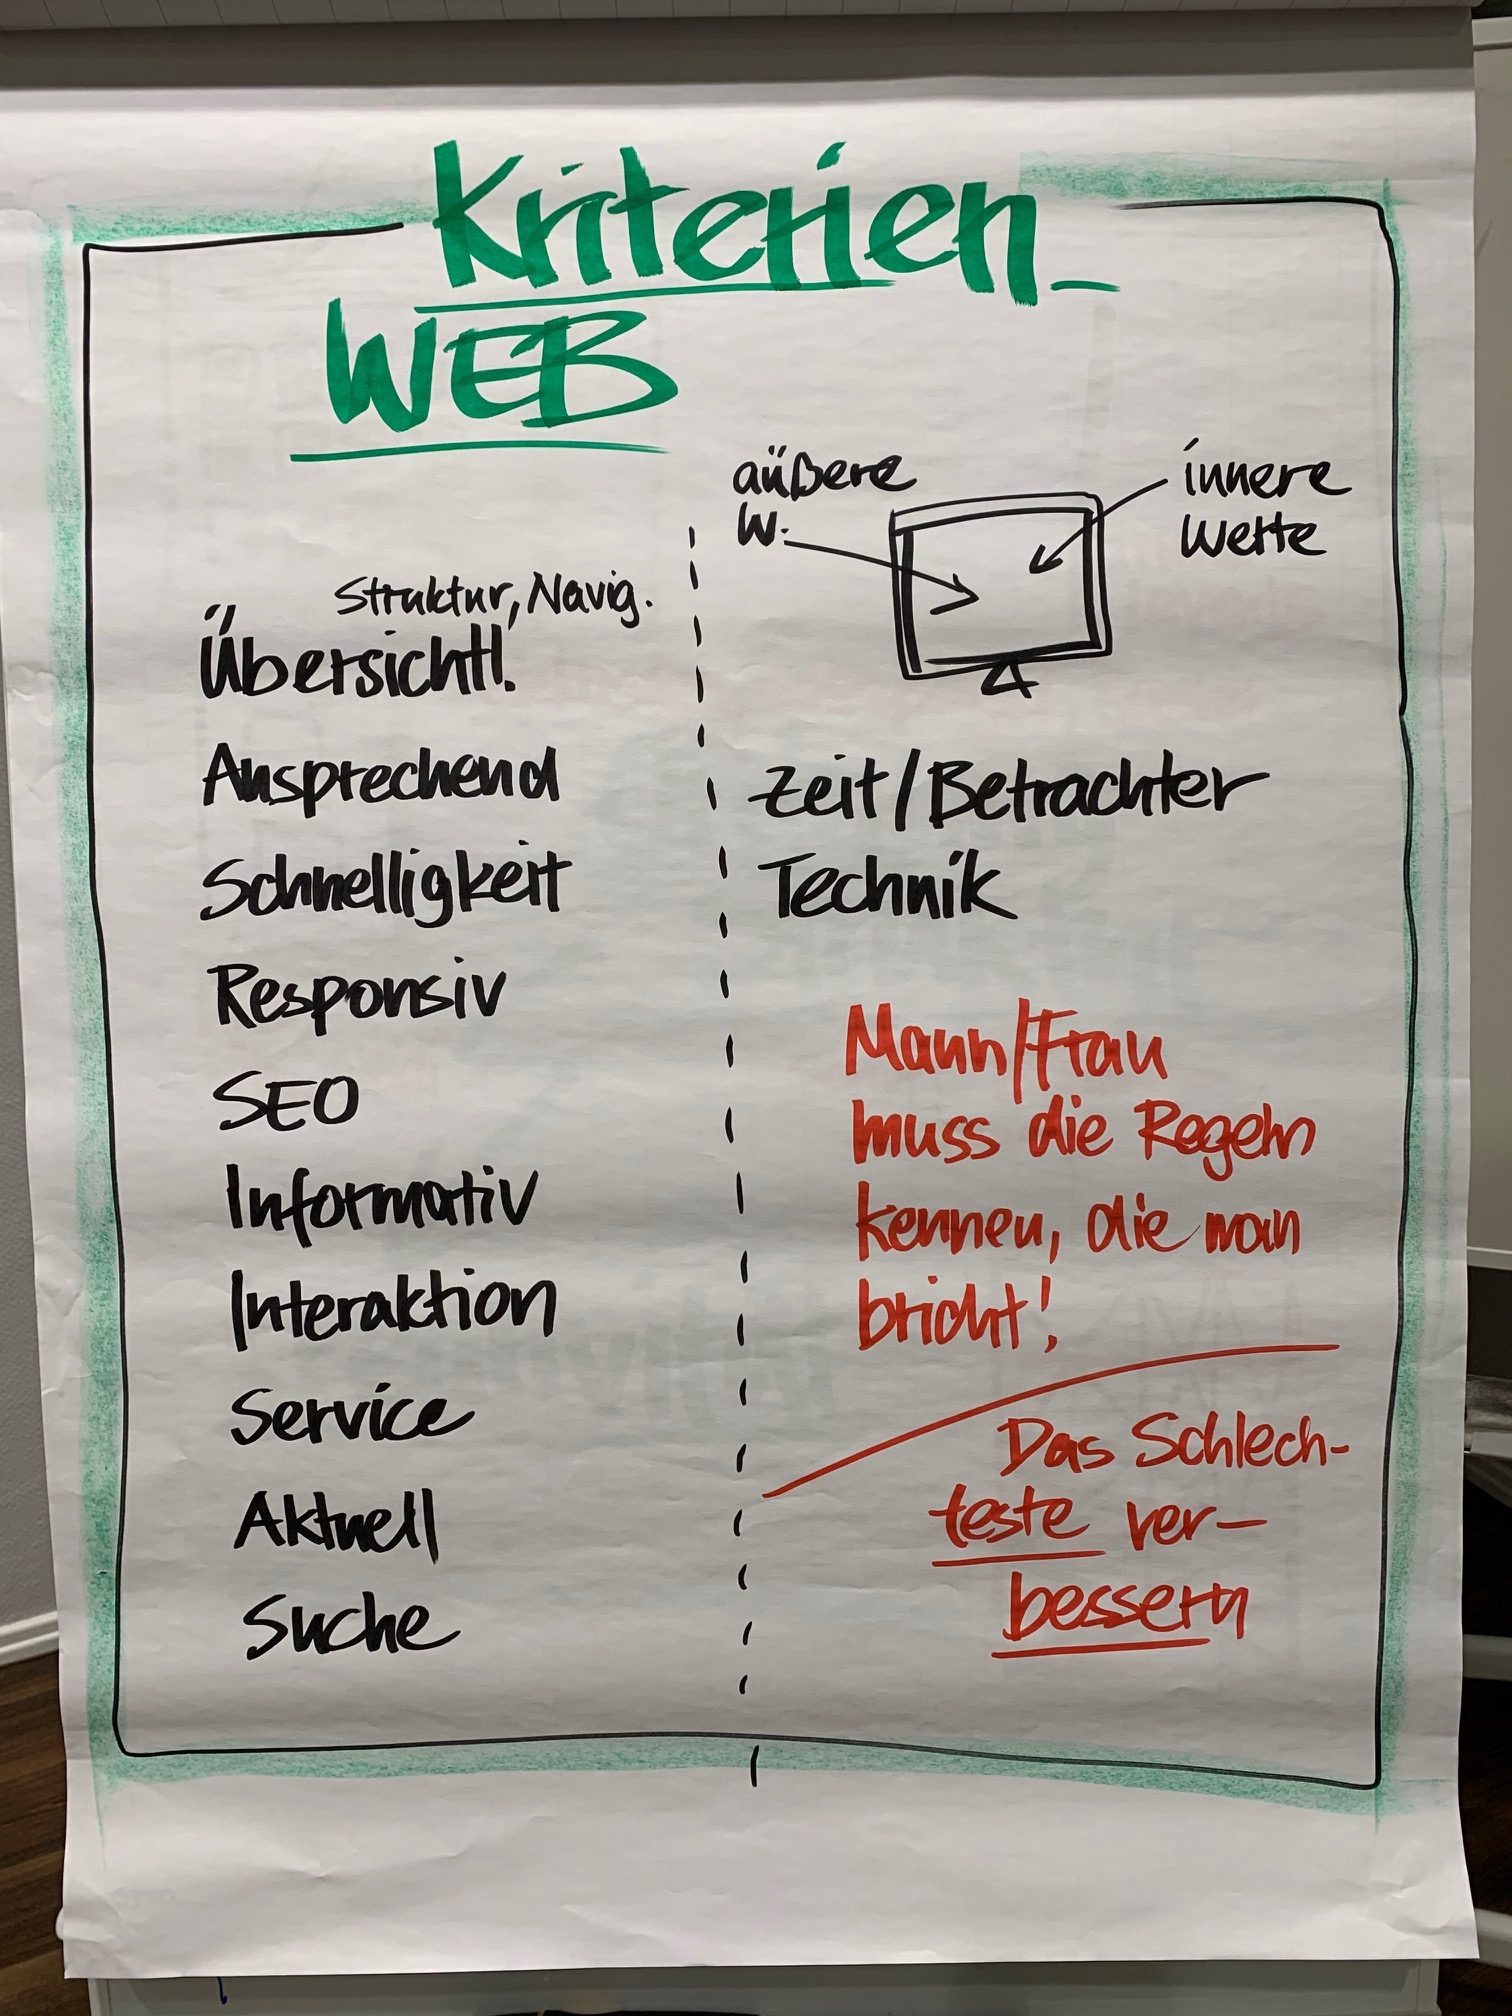 Kriterien
WEB
Struktur, Navig.
Übersichtl.
Ansprechend
Schnelligkeit
Responsiv
SEO
Informativ
Interaktion
Service
Aktuell
Suche
äußere
W.
innere
Werte
Zeit/Betrachter
Technik
Mann/Frau
muss die Regeln
kennen, die man
bricht!
Das Schlech-
teste ver-
bessern